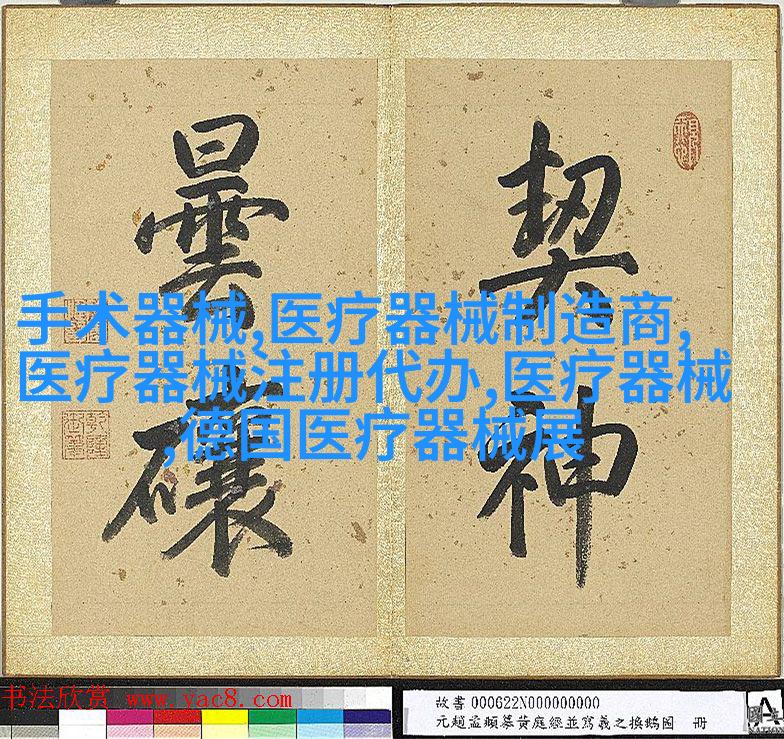 契神
曇礶
手术器械,医疗器械制造商,
医疗器械注册代办,医疗器械
,德国医疗器械展
书法欣赏 www.yac8.com
故書000622N000000000
元趙孟頫摹黃庭經並寫羲之換鵝圖 冊